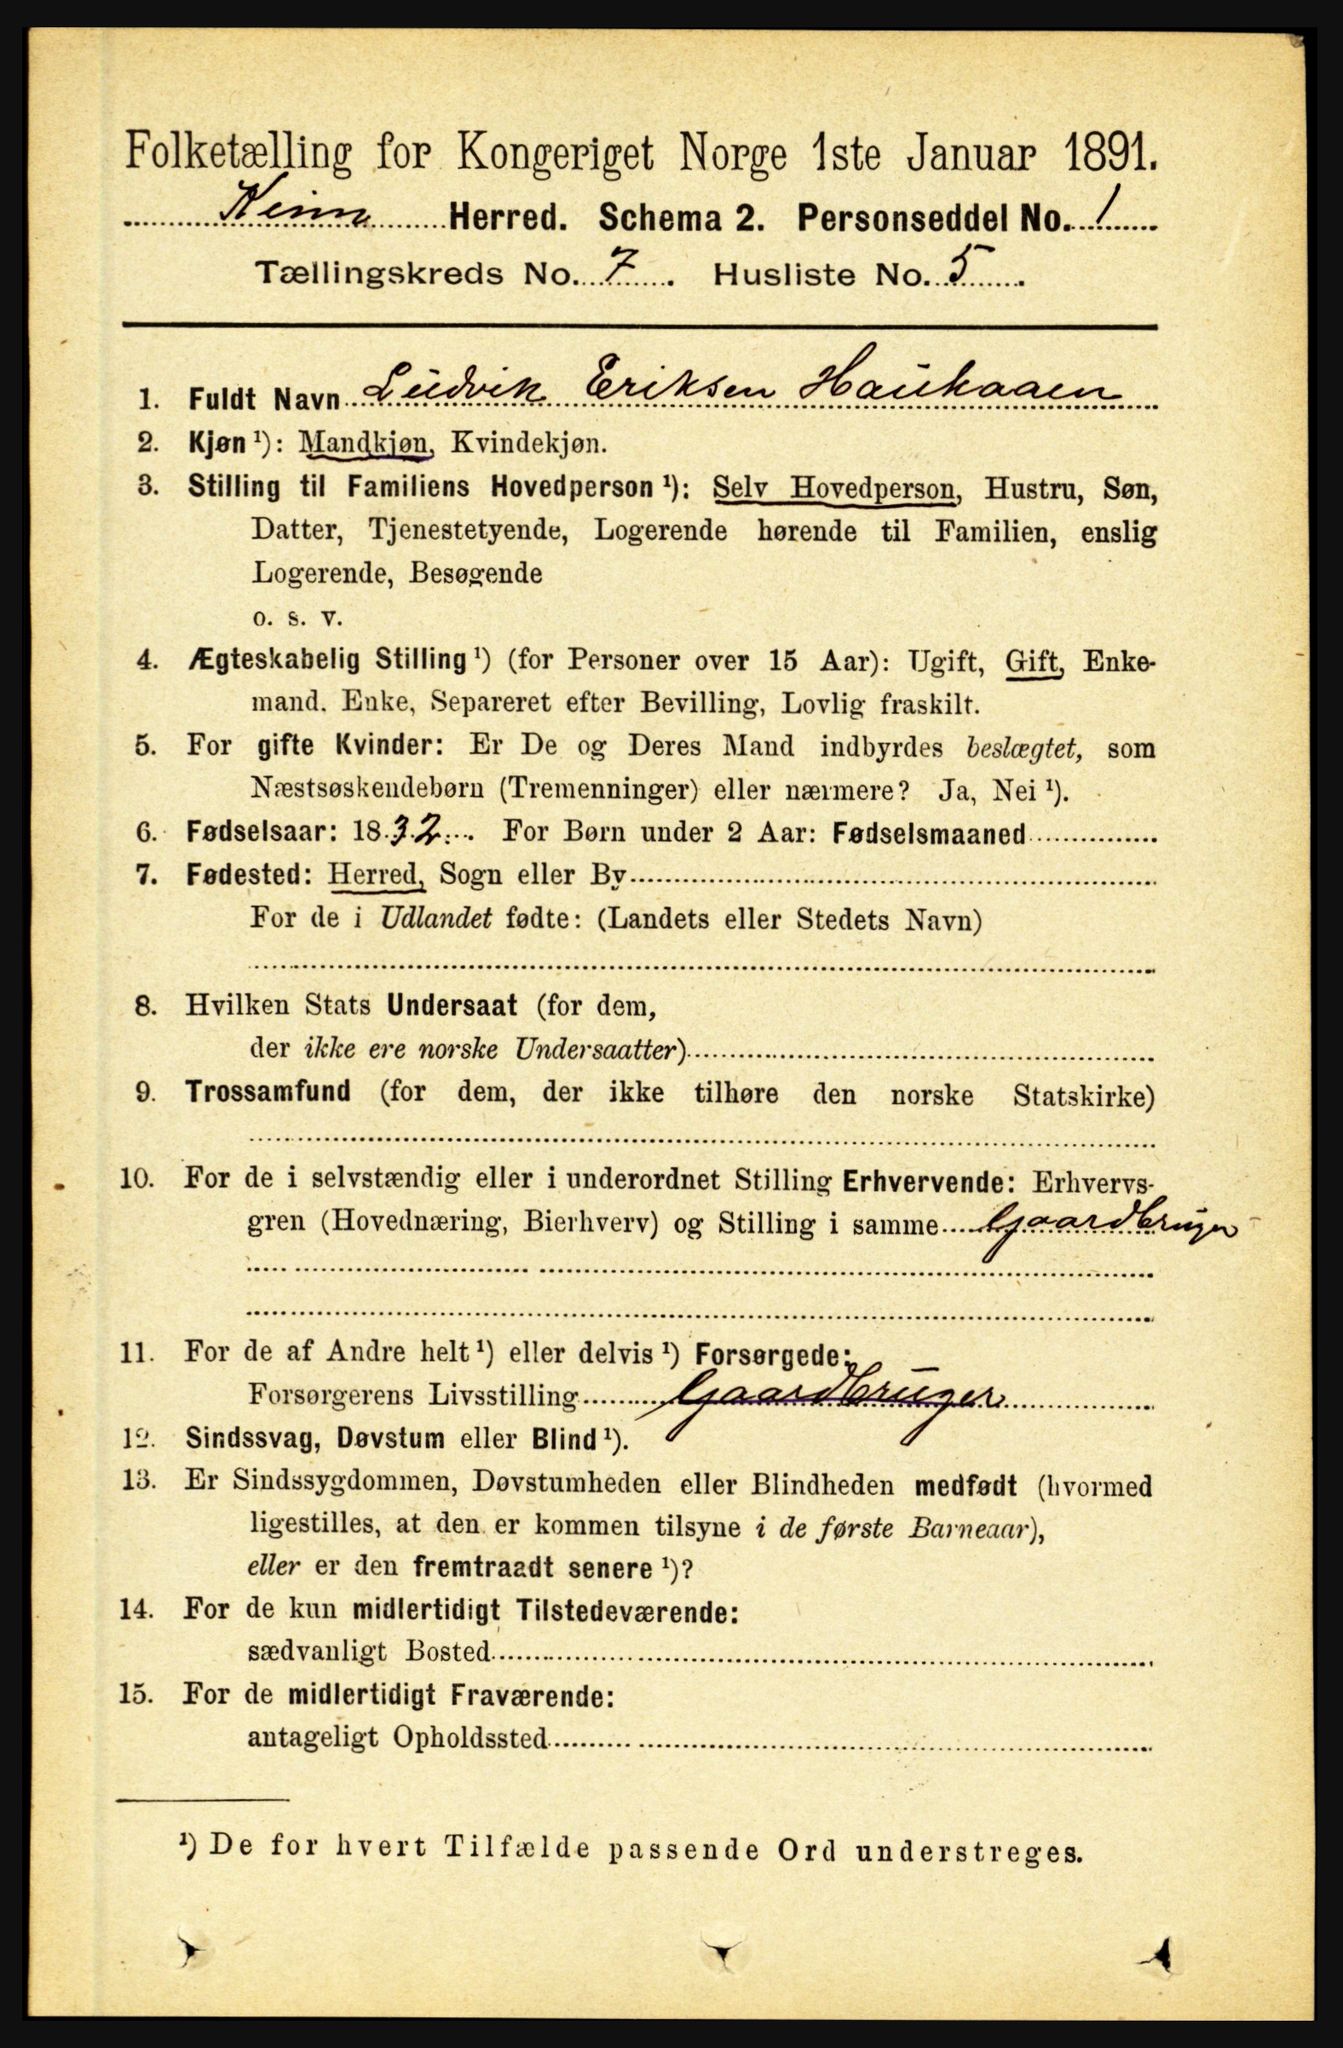 Folketælling for Kongeriget Norge 1ste Januar 1891.
Kinn Herred. Schema 2. Personseddel No. 1
Tællingskreds No. 7. Husliste No. 5.
1. Fuldt Navn Ludvik Eriksen Haukaaen
2. Kjøn ¹): Mandkjøn, Kvindekjøn.
3. Stilling til Familiens Hovedperson ¹): Selv Hovedperson, Hustru, Søn,
Datter, Tjenestetyende, Logerende hørende til Familien, enslig
Logerende, Besøgende
o. s. v.
4. Ægteskabelig Stilling ¹) (for Personer over 15 Aar): Ugift, Gift, Enke-
mand. Enke, Separeret efter Bevilling, Lovlig fraskilt.
5. For gifte Kvinder: Er De og Deres Mand indbyrdes beslægtet, som
Næstsøskendebørn (Tremenninger) eller nærmere? Ja, Nei ¹).
6. Fødselsaar: 1832. For Børn under 2 Aar: Fødselsmaaned
7. Fødested: Herred, Sogn eller By
For de i Udlandet fødte: (Landets eller Stedets Navn)
8. Hvilken Stats Undersaat (for dem,
der ikke ere norske Undersaatter)
9. Trossamfund (for dem, der ikke tilhøre den norske Statskirke)
10. For de i selvstændig eller i underordnet Stilling Erhvervende: Erhvervs-
gren (Hovednæring, Bierhverv) og Stilling i samme Gaardbruger
11. For de af Andre helt ¹) eller delvis ¹) Forsørgede:
Forsørgerens Livsstilling Gaardbruger
12. Sindssvag, Døvstum eller Blind ¹).
13. Er Sindssygdommen, Døvstumheden eller Blindheden medfødt (hvormed
ligestilles, at den er kommen tilsyne i de første Barneaar),
eller er den fremtraadt senere ¹)?
14. For de kun midlertidigt Tilstedeværende:
sædvanligt Bosted
15. For de midlertidigt Fraværende:
antageligt Opholdssted
¹) De for hvert Tilfælde passende Ord understreges.